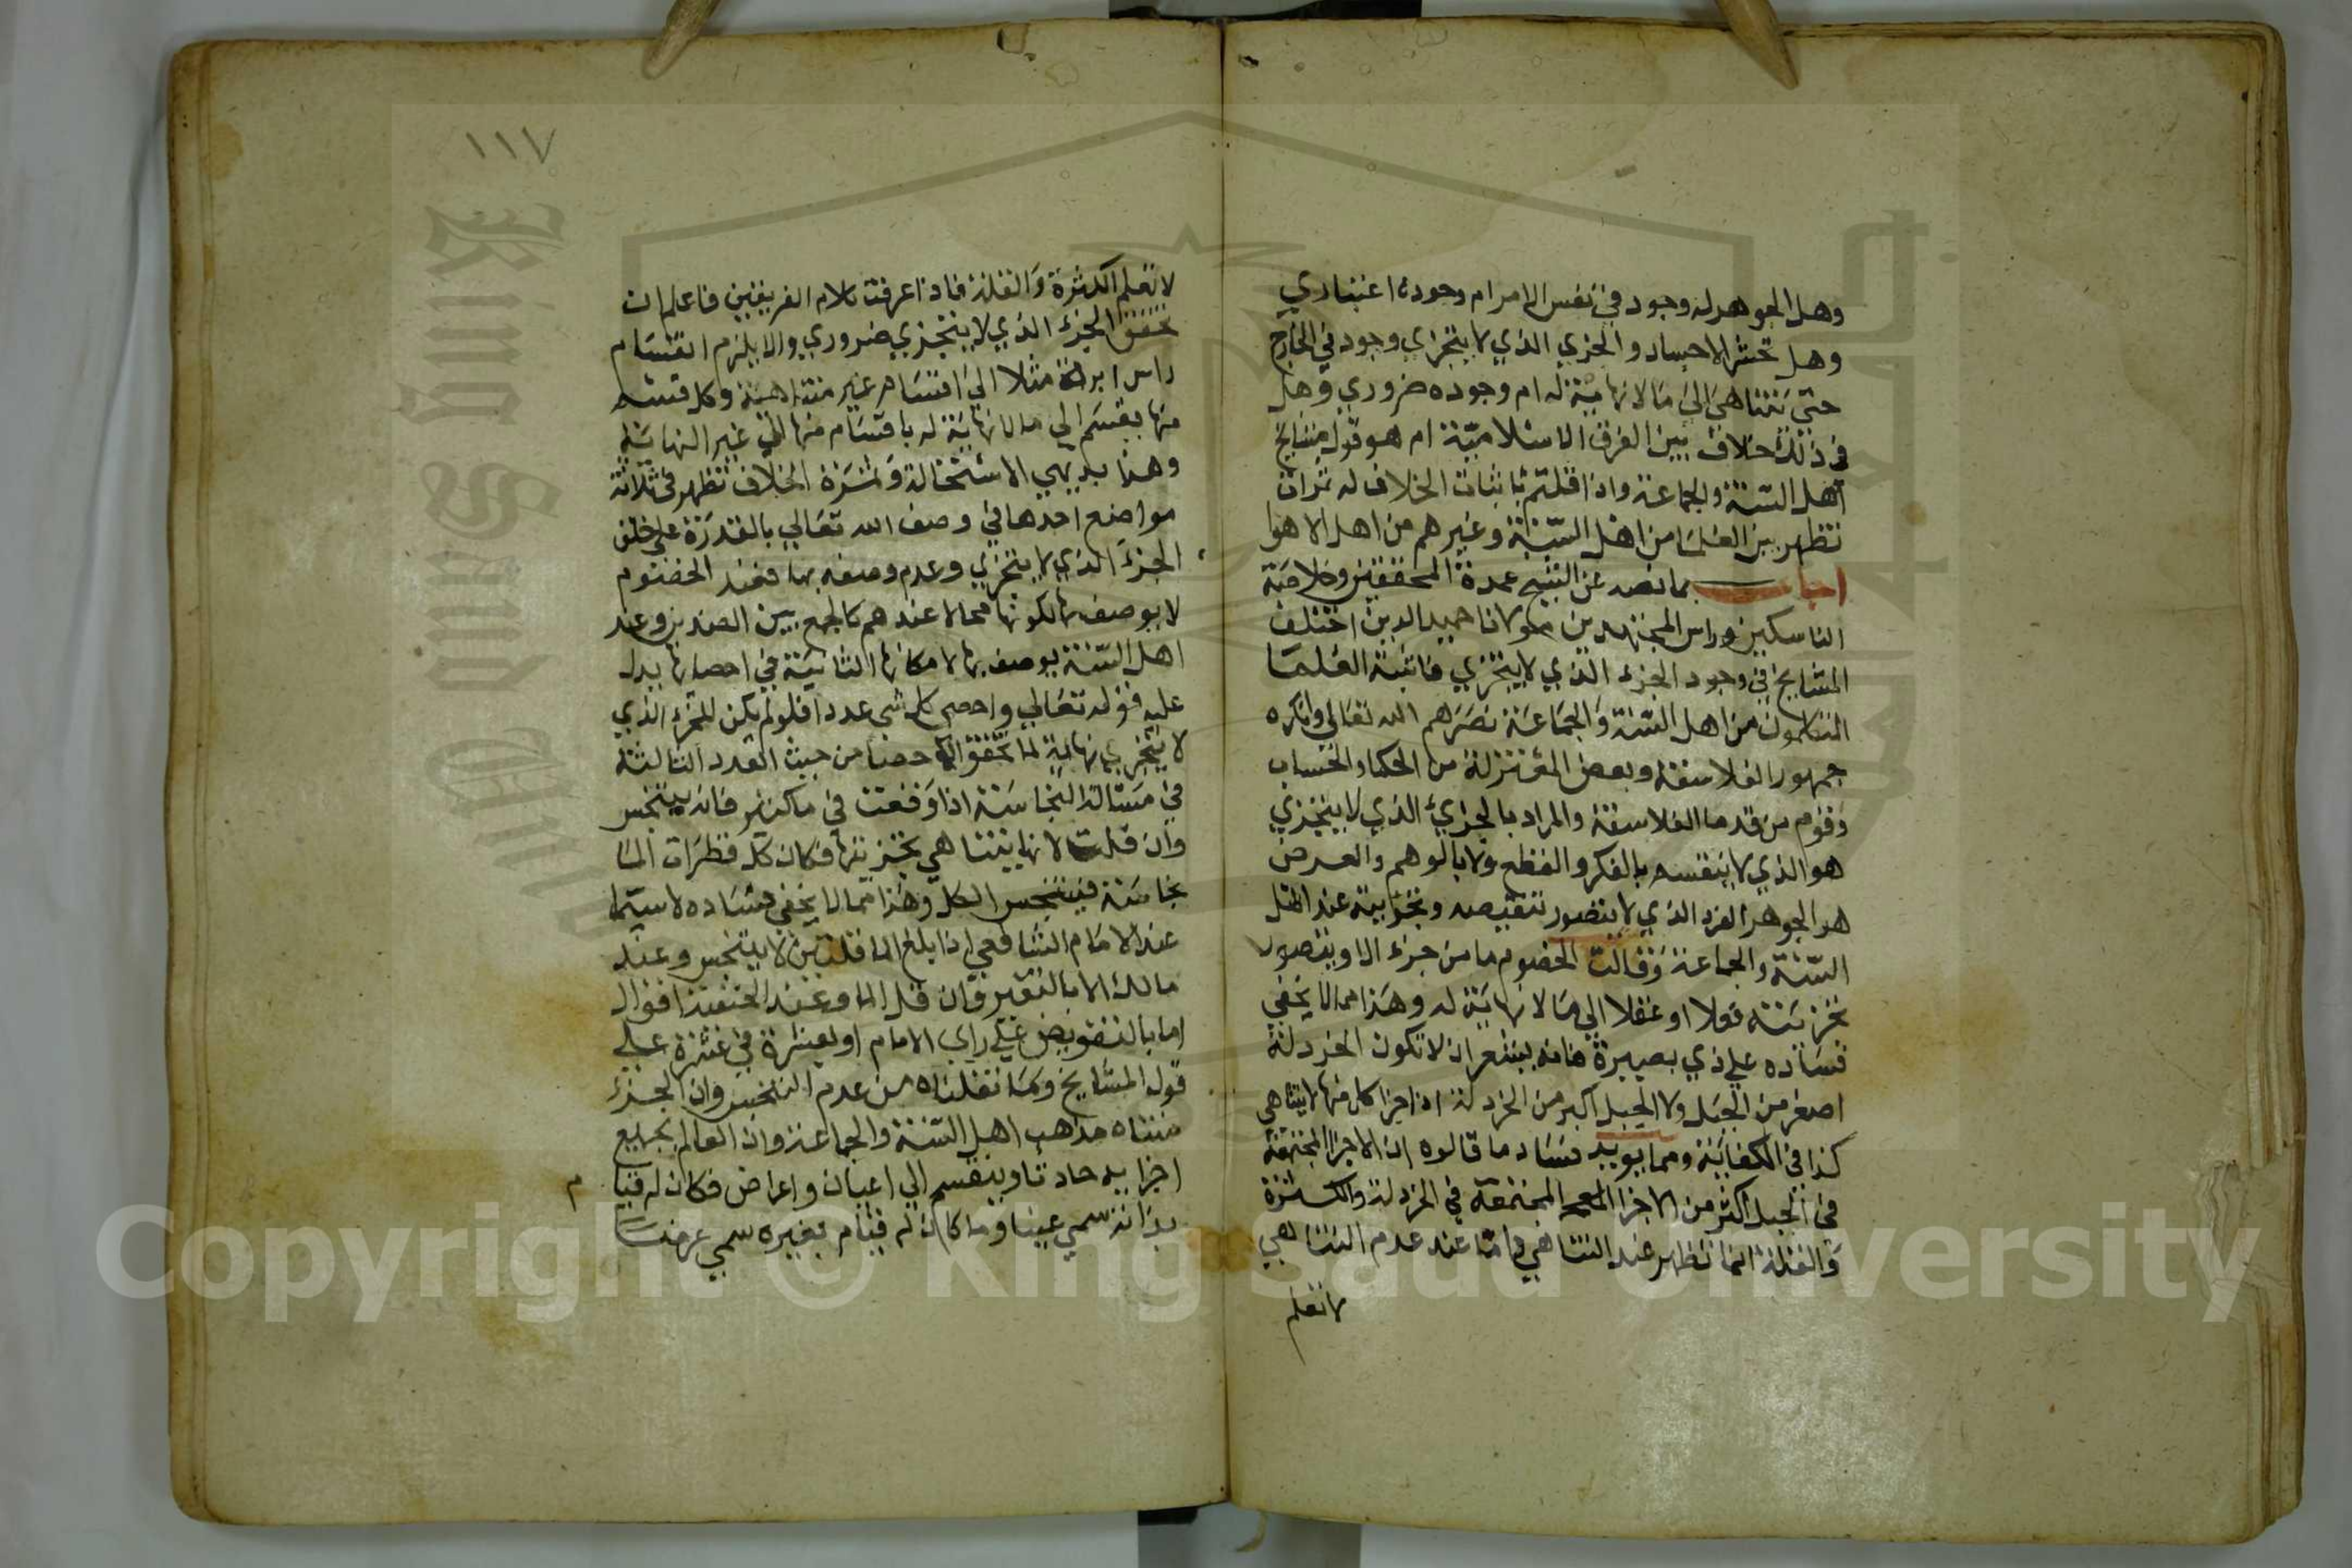 وهل الجوهر له وجود في نفس الامر ام وجوده اعتباري
وهل تحشر الاجساد والجزي الذي لا يتجزي وجود في الخارج
حتى تتناهى الى ما لا نهاية له ام وجوده ضروري وهل
في ذلك خلاف بين الفرق الاسلامية ام هو قول مشايخ
اهل السنة والجماعة واذا قلتم باثبات الخلاف له ثمرات
تظهر بين العلما من اهل السنة وغيرهم من اهل الاهوا
اجاب بما نصه عن الشيخ عمدة المحققين وخلاصة
الناسكين وراس المجتهدين مولانا حميد الدين اختلف
المشايخ في وجود الجزء الذي لا يتجزي فاثبته العلما
المتكلمون من اهل السنة والجماعة نصرهم الله تعالي وانكره
جمهور الفلاسفة وبعض المعتزلة من الحكما والحساب
وقوم من قدما الفلاسفة والمراد بالجزئ الذي لا يتجزي
هو الذي لا ينقسم بالفكر والقطع ولا بالوهم والعرض
هو الجوهر الفرد الذي لا يتصور تنقيصه وتجزيته عند اهل
السنة والجماعة وقالت الخصوم ما من جزء الا ويتصور
تجزيته قولا او عقلا الي ما لا نهاية له وهذا مما لا يخفي
فساده علي ذي بصيرة فانه يشعر ان لا تكون الخردلة
اصغر من الجبل ولا الجبل اكبر من الخردلة اذ اجزا كل منها لا يتناهي
كذا في الكفاية ومما يويد فساد ما قالوه ان الاجزا المجتمعة
في الجبل اكثر من الاجزا المجتمعة في الخردلة والكثرة
والقلة انما تظهر عند التناهي فاما عند عدم التناهي
لا تعلم
١١٧
لا تعلم الكثرة والقلة فاذا عرفت كلام الفريقين فاعلم ان
تحقق الجزء الذي لا يتجزي ضروري والا يلزم انقسام
راس ابرة مثلا الي اقسام غير متناهية وكل قسم
منها ينقسم الي ما لا نهاية له باقسام منها الي غير النهاية
وهذا بديهي الاستحالة وثمرة الخلاف تظهر في ثلاثة
مواضع احدها في وصف الله تعالي بالقدرة على خلق
الجزء الذي لا يتجزي وعدم وصفه بها فعند الخصوم
لا يوصف بها لكونها محالا عندهم كالجمع بين الضدين وعند
اهل السنة يوصف بها لامكانها الثانية في احصايها يدل
عليه قوله تعالي واحصى كل شي عددا فلو لم يكن للجزء الذي
لا يتجزي نهاية لما تحقق الاحصا من حيث العدد الثالثة
في مسالة النجاسة اذا وقعت في ما كثير فانه يتنجس
وان قلت لانها لا يتناهي تجزيتها فكان كل قطرات الما
نجاسة فيتنجس الكل وهذا مما لا يخفي فساده لا سيما
عند الامام الشافعي اذا بلغ الما قلتين لا يتنجس وعند
مالك الا بالتغير وان قل الما وعند الحنفية اقوال
اما بالتفويض علي راي الامام او بعشرة في عشرة علي
قول المشايخ وكما نقلناه من عدم التنجس وان الجزء
متناه مذاهب اهل السنة والجماعة وان العالم بجميع
اجزايه حادث وينقسم الي اعيان واعراض فكان له قيا م
بذاته سمي عينا وما كان له قيام بغيره سمي عرضا
King Saud University
جامعة الملك سعود
Copyright © King Saud University